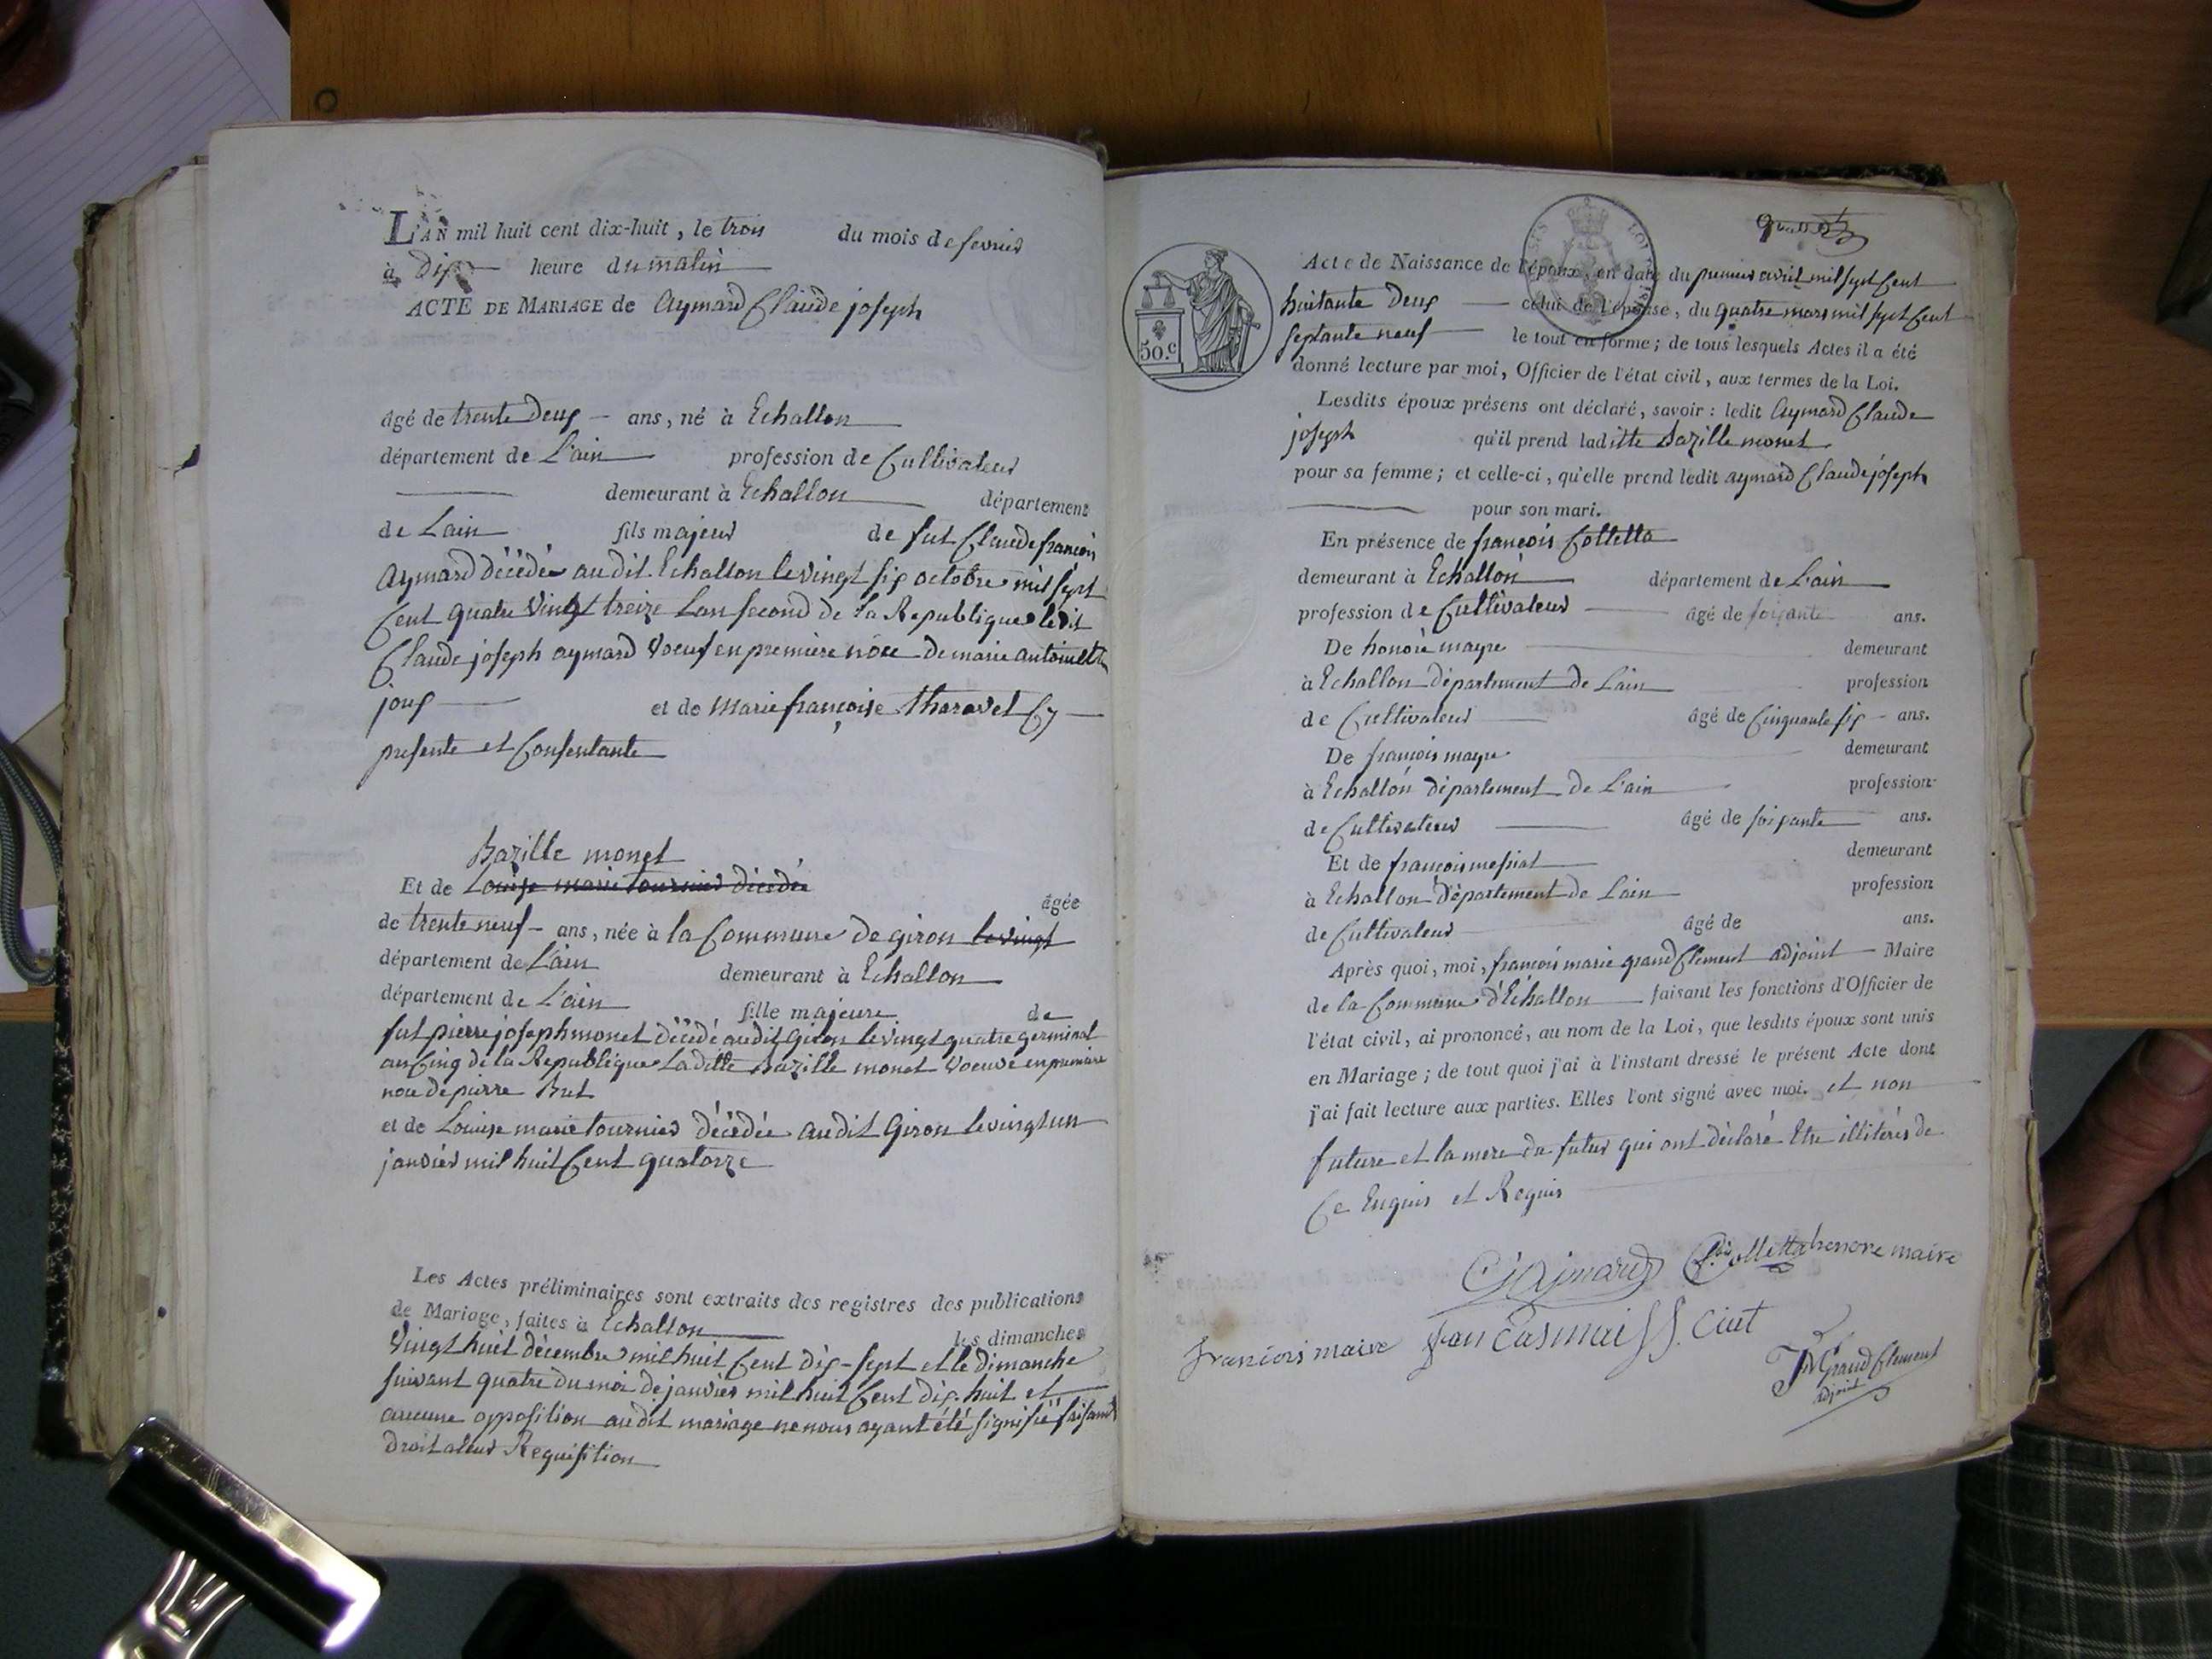 L'AN mil huit cent dix-huit, le trois du mois de fevrier
à Dix heure du matin
ACTE DE MARIAGE de Aymard Claude joseph
âgé de trente Deux ans, né à Echallon
département de L'ain profession de Cultivateur
demeurant à Echallon département
de Lain fils majeur de fut Claude francois
Aymard décédé audit Echallon le vingt six octobre mil sept
Cent quatre vingt treize Lan second de la Republique ledit
Claude joseph aymard Voeuf en première nôce de marie antoinette
joux et de Marie françoise tharavel Cy
presente et Consentante
Bazille monet
Et de Louise marie tournier décédée
âgée
de trente neuf ans, née à la Commune de giron le vingt
département de L'ain demeurant à Echallon
département de L'ain fille majeure de
fut pierre joseph monet décédé audit Giron le vingt quatre germinal
an Cinq de la Republique Ladite Bazille monet Voeuve en premiere
noce de pierre Bret
et de Louise marie tournier décédée audit Giron le vingt un
janvier mil huit Cent quatorze
Les Actes préliminaires sont extraits des registres des publications
de Mariage, faites à Echallon les dimanches
Vingt huit décembre mil huit Cent dix-sept et le dimanche
suivant quatre du moi de janvier mil huit Cent dix-huit et
aucune opposition audit mariage ne nous ayant été signifié faisant
Droit a leur Requisition
Acte de Naissance de l'époux, en date du premier avril mil sept Cent
huitante Deux celui de l'épouse, du quatre mars mil sept Cent
septante neuf le tout en forme; de tous lesquels Actes il a été
50.c
donné lecture par moi, Officier de l'état civil, aux termes de la Loi.
Lesdits époux présens ont déclaré, savoir: ledit Aymard Claude
joseph qu'il prend laditte Bazille monet
pour sa femme; et celle-ci, qu'elle prend ledit aymard Claude joseph
pour son mari.
En présence de françois Colletta
demeurant à Echallon département de L'ain
profession de Cultivateur âgé de soixante ans.
De honoré mayre demeurant
à Echallon département de Lain profession
de Cultivateur âgé de Cinquante six ans.
De francois mayre demeurant
à Echallon département de L'ain profession
de Cultivateur âgé de soixante ans.
Et de francois messiat demeurant
à Echallon département de Lain profession
de Cultivateur âgé de ans.
Après quoi, moi, francois marie grand Clement adjoint Maire
de la Commune d'Echallon faisant les fonctions d'Officier de
l'état civil, ai prononcé, au nom de la Loi, que lesdits époux sont unis
en Mariage; de tout quoi j'ai à l'instant dressé le présent Acte dont
j'ai fait lecture aux parties. Elles l'ont signé avec moi. et non
future et la mere du futur qui ont déclaré Etre illiterés de
Ce Enquis et Requis
Colletta honore maire
francois maire
GrandClement
adjoint